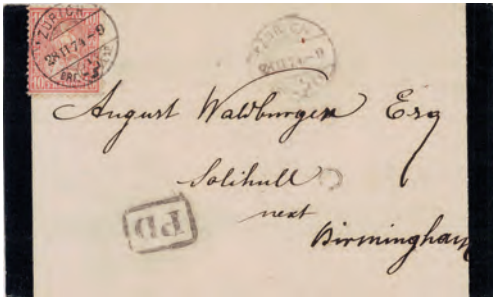 ZÜRICH
28 II 74 - 9
ZÜRICH
28 II 74 - 9
August Waldburger Esq
Solihull
next
Birmingham
PD